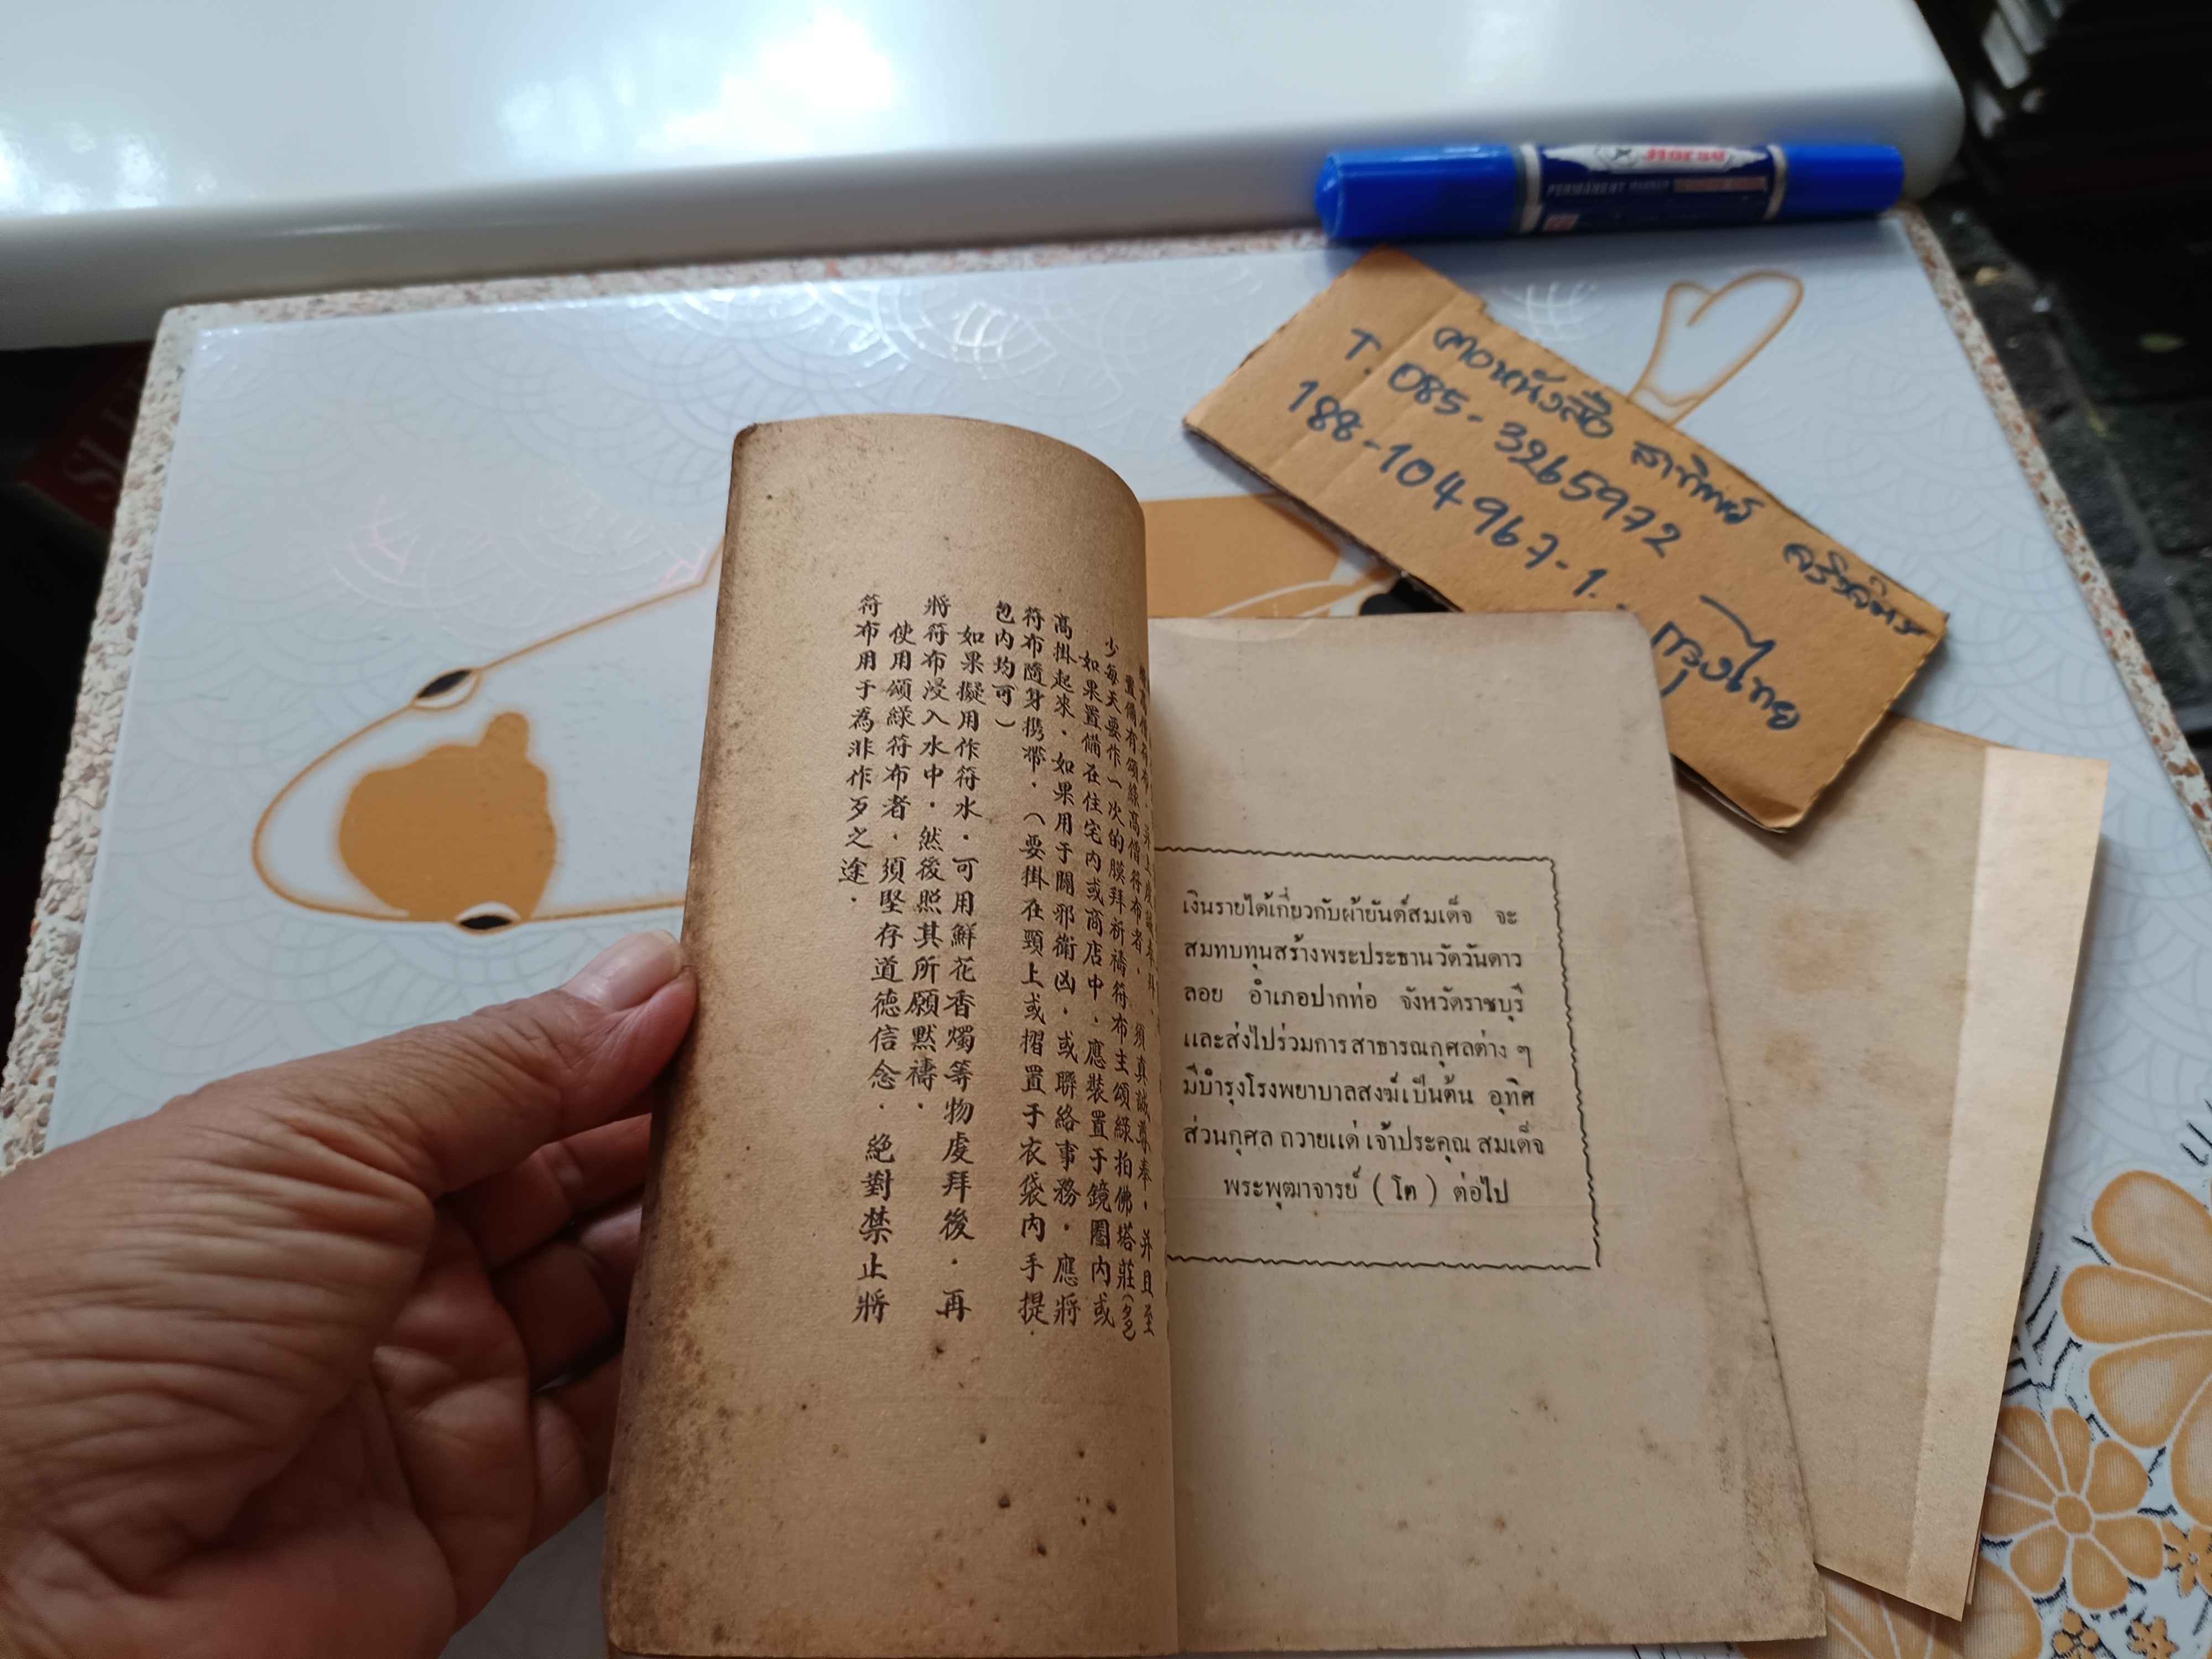 Horse
PERMANENT MARKER
ตอหนังสือ
T. 085-3265972
188-104967-1
少每天要作一次的膜拜祈禱符布主頌綠拍佛塔莊(名
如果置備在住宅內或商店中．應裝置于鏡圈內或
高掛起來．如果用于闢邪衛凶．或聯絡事務．應將
符布隨身携帶．(要掛在頸上或摺置于衣袋內手提
包內均可)
如果擬用作符水．可用鮮花香燭等物虔拜後．再
將符布浸入水中．然後照其所願默禱．
使用頌綠符布者．須堅存道德信念．絕對禁止將
符布用于為非作歹之途．
เงินรายได้เกี่ยวกับผ้ายันต์สมเด็จ จะ
สมทบทุนสร้างพระประธานวัดวันดาว
ลอย อำเภอปากท่อ จังหวัดราชบุรี
และส่งไปร่วมการสาธารณกุศลต่าง ๆ
มีบำรุงโรงพยาบาลสงฆ์เป็นต้น อุทิศ
ส่วนกุศล ถวายแด่ เจ้าประคุณ สมเด็จ
พระพุฒาจารย์ ( โต ) ต่อไป